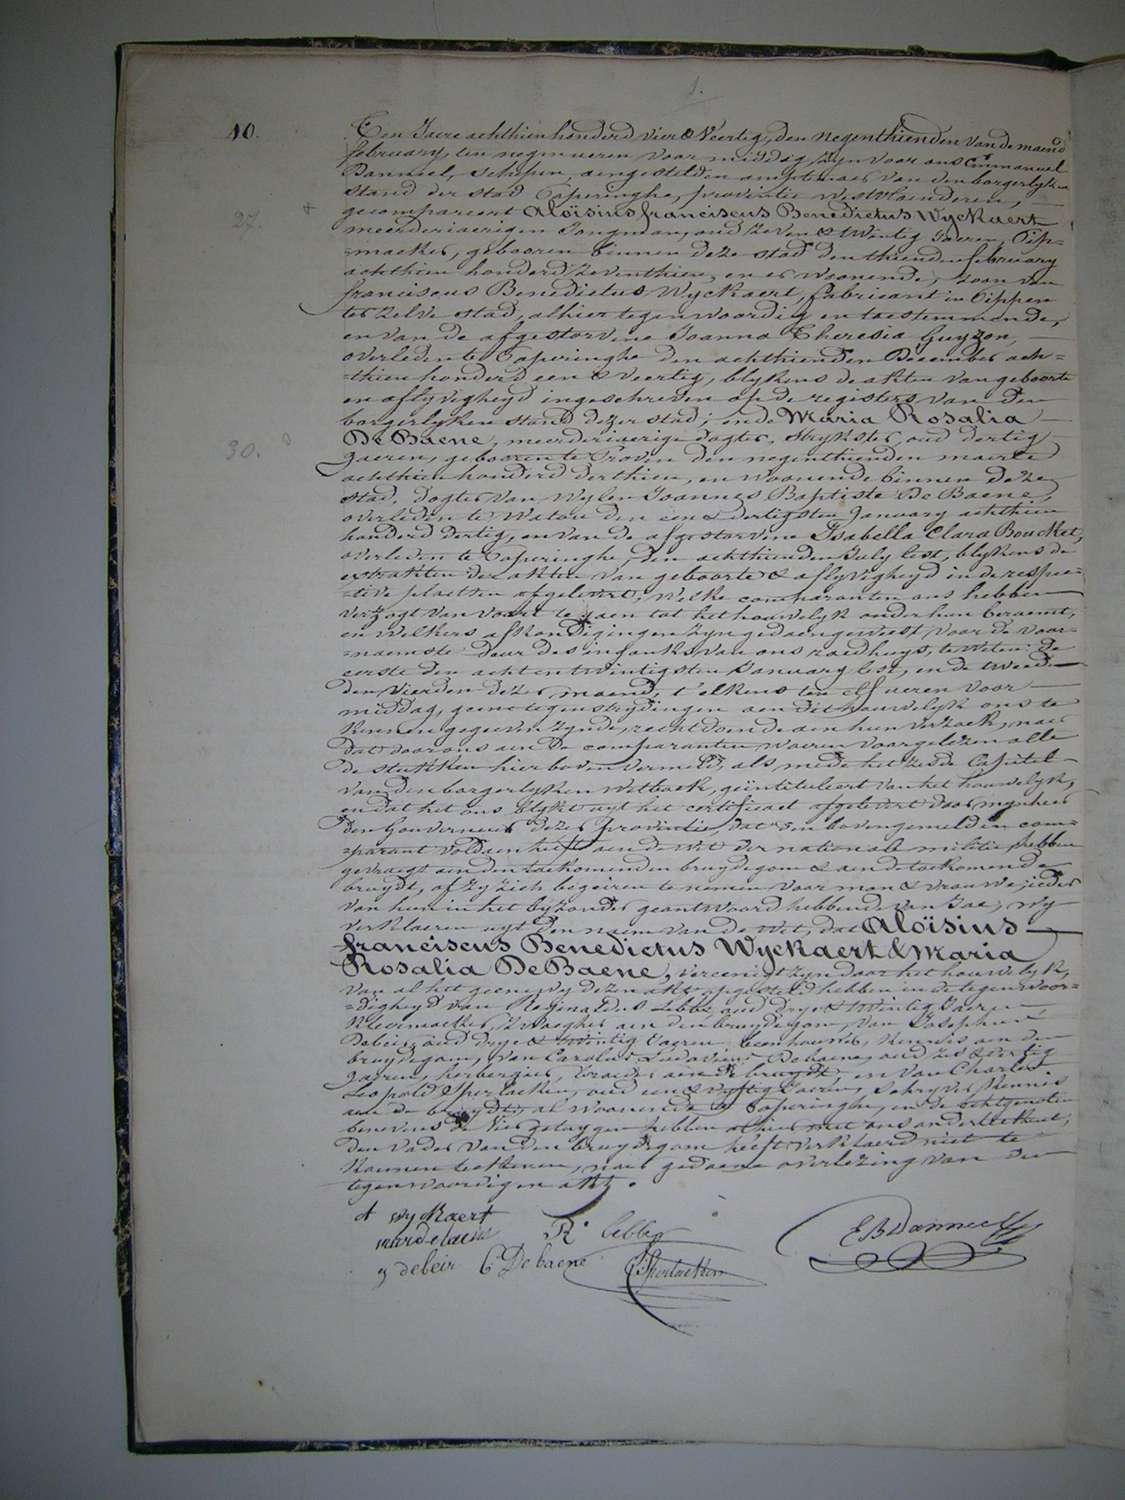 1.
10.
Ten Jaere achthien honderd vier & Veertig, den negenthienden van de maend
february, ten negen ueren voor middag, zyn voor ons Emmanuel
Danneel, schepen, aengestelden amptenaer van den borgerlyken
stand der stad Poperinghe, provintie westvlaenderen,
27.
gecompareert Aloïsius franciscus Benedictus Wyckaert
meerderjaerigen Jongman, oud zeven & twintig Jaeren, Pip-
-maeker, gebooren binnen deze stad den thienden february
achthien honderd zeventhien, en er woonende, zoon van
franciscus Benedictus Wyckaert, fabricant in Pippen
ter zelve stad, alhier tegenwoordig en toestemmende,
en van de afgestorvene Joanna Theresia Guyzon,
overleden te Poperinghe den achthienden December ach-
-thien honderd een & veertig, blykens de akten van geboorte
en aflyvigheyd ingeschreven op de registers van den
borgerlyken stand dezer stad; ende Maria Rosalia
30.
De Baene, meerderjaerige dogter, strykster, oud dertig
Jaeren, gebooren te Proven den negenthienden maerte
achthien honderd derthien, en woonende binnen deze
stad, dogter van wylen Joannes Baptiste De Baene,
overleden te Watou den een & dertigsten January achthien
honderd dertig, en van de afgestorvene Isabella Clara Boucket,
overleden te Poperinghe, den achthienden July lest, blykens de
extrakten der akten van geboorte & aflyvigheyd in de respec-
-tive plaetsen afgelevert; Welke comparanten ons hebben
verzogt van voort te gaen tot het houwelyk onder hun beraemt,
en welkers afkondigingen zyn gedaen geweest voor de voor-
-naemste deur des inganks van ons raedhuys, te weten: de
eerste den acht en twintigsten January lest, en de tweede
den vierden dezer maend, t'elkens ten elf ueren voor
middag, geene tegenstrydingen aen dit houwelyk ons te
kennen gegeven zynde, recht doende aen hun verzoek, naer
dat door ons aen de comparanten waeren voorgelezen alle
de stukken hier boven vermeld, als mede het zesde Capitel
van den borgerlyken Wetboek, geïntituleert van het houwelyk,
en dat het ons blykt uyt het certificaet afgelevert door mynheer
den Gouverneur dezer provintie, dat den bovengemelden com-
-parant voldaen heeft aen de wet der nationale militie, hebben
gevraegt aen den toekomenden bruydegom & aen de toekomende
bruydt, of zy zich begeiren te nemen voor man & vrouwe, ieder
van hun in het byzonder geantwoord hebbende van Jae; wy
verklaeren uyt den naem van de wet, dat Aloïsius
franciscus Benedictus Wyckaert & Maria
Rosalia De Baene, vereenigt zyn door het houwelyk,
van al het geene wy dezen akt opgesteld hebben in de tegenwoor-
-digheyd van Reginaldus Lebbe, oud drye & twintig Jaeren
Kleermaeker, Zwaeger aen den bruydegom, van Josephus
Debeir, oud drye & twintig Jaeren, kennis aen den
bruydegom, van Carolus Ludovicus Debaene, oud zes & dertig
Jaeren, herbergier, broeder aen de bruydt, en van Charles
Leopold Sperlaeken, oud een & vyftig Jaeren, schryver, kennis
aen de bruydt, al woonende te Poperinghe, en de echtgenoten
benevens de vier getuygen hebben alhier met ons onderteekent,
den vader van den bruydegom heeft verklaerd niet te
konnen teekenen, naer gedaene overlezing van den
tegenwoordigen akt.
A wyckaert
R. Lebbe
E B Danneel
j debeir C Debaene